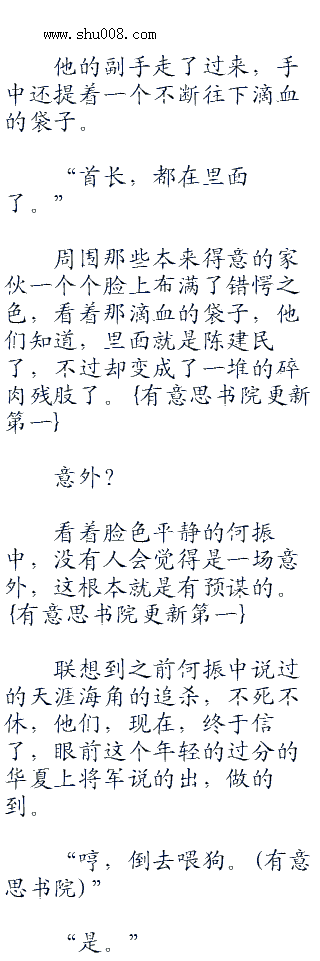 www.shu008.com
他的副手走了过来，手
中还提着一个不断往下滴血
的袋子。
“首长，都在里面
了。”
周围那些本来得意的家
伙一个个脸上布满了错愕之
色，看着那滴血的袋子，他
们知道，里面就是陈建民
了，不过却变成了一堆的碎
肉残肢了。{有意思书院更新
第一}
意外？
看着脸色平静的何振
中，没有人会觉得是一场意
外，这根本就是有预谋的。
{有意思书院更新第一}
联想到之前何振中说过
的天涯海角的追杀，不死不
休，他们，现在，终于信
了，眼前这个年轻的过分的
华夏上将军说的出，做的
到。
“哼，倒去喂狗。(有意
思书院)”
“是。”